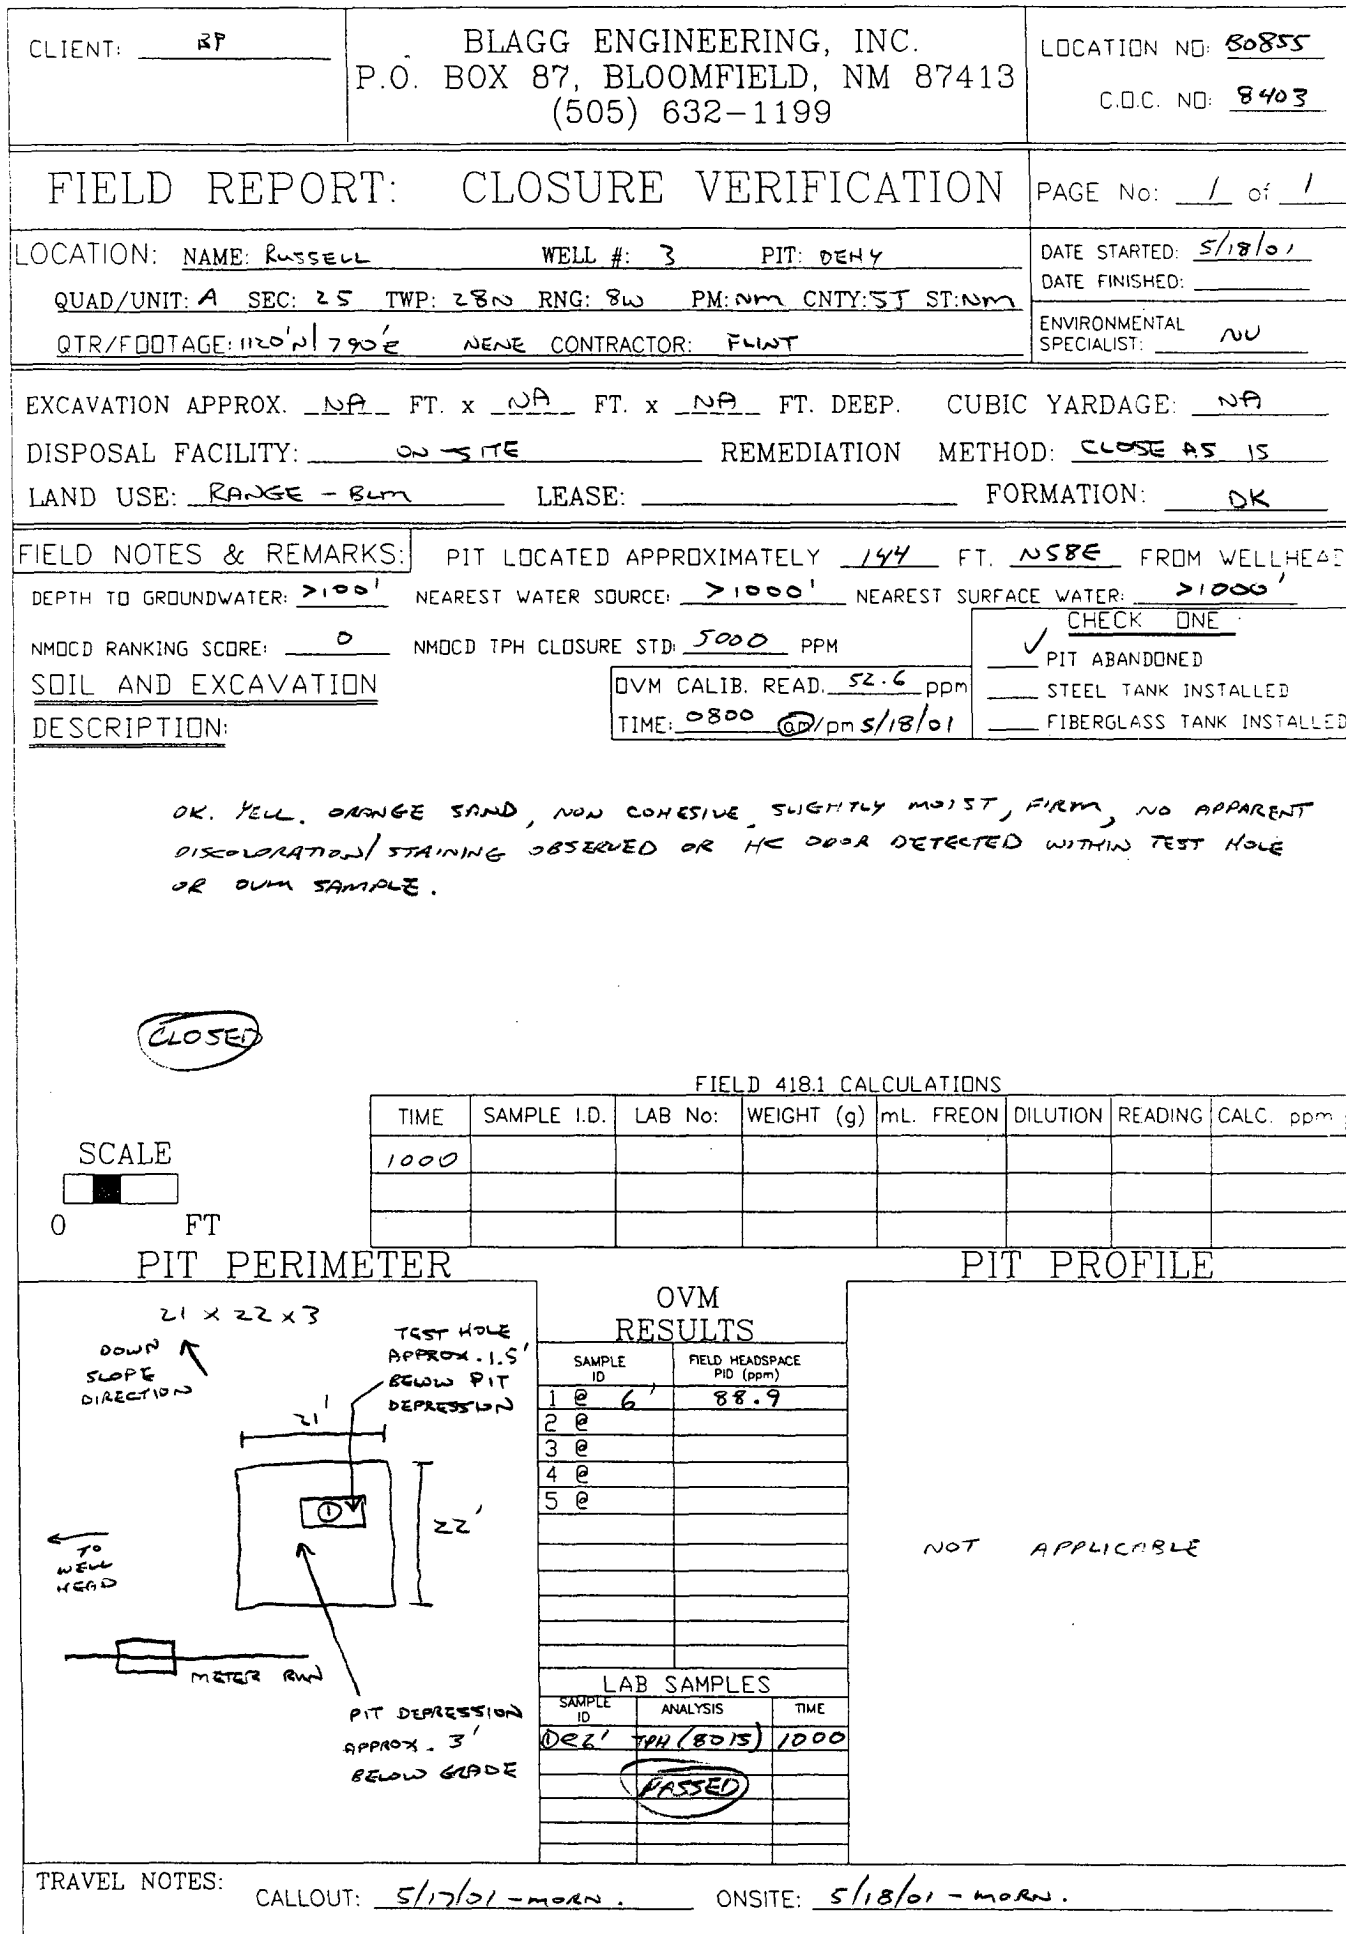 CLIENT: BP
BLAGG ENGINEERING, INC.
P.O. BOX 87, BLOOMFIELD, NM 87413
(505) 632-1199
LOCATION NO: B0855
C.O.C. NO: 8403
FIELD REPORT: CLOSURE VERIFICATION
PAGE No: 1 of 1
LOCATION: NAME: RUSSELL WELL #: 3 PIT: DEHY
QUAD/UNIT: A SEC: 25 TWP: 28N RNG: 8W PM: NM CNTY: SJ ST: NM
QTR/FOOTAGE: 1120'N/790'E NENE CONTRACTOR: FLINT
DATE STARTED: 5/18/01
DATE FINISHED:
ENVIRONMENTAL
SPECIALIST: NV
EXCAVATION APPROX. NA FT. x NA FT. x NA FT. DEEP. CUBIC YARDAGE: NA
DISPOSAL FACILITY: ON-SITE REMEDIATION METHOD: CLOSE AS IS
LAND USE: RANGE - BLM LEASE: FORMATION: DK
FIELD NOTES & REMARKS: PIT LOCATED APPROXIMATELY 144 FT. N58E FROM WELLHEAD
DEPTH TO GROUNDWATER: >100' NEAREST WATER SOURCE: >1000' NEAREST SURFACE WATER: >1000'
NMOCD RANKING SCORE: 0 NMOCD TPH CLOSURE STD: 5000 PPM
CHECK ONE
✓ PIT ABANDONED
STEEL TANK INSTALLED
FIBERGLASS TANK INSTALLED
SOIL AND EXCAVATION
DESCRIPTION:
OVM CALIB. READ. 52.6 ppm
TIME: 0800 am/pm 5/18/01
DK. YELL. ORANGE SAND, NON COHESIVE, SLIGHTLY MOIST, FIRM, NO APPARENT
DISCOLORATION/STAINING OBSERVED OR HC ODOR DETECTED WITHIN TEST HOLE
OR OVM SAMPLE.
CLOSED
FIELD 418.1 CALCULATIONS
TIME SAMPLE I.D. LAB No: WEIGHT (g) mL. FREON DILUTION READING CALC. ppm
1000
SCALE
0 FT
PIT PERIMETER
21 x 22 x 3
DOWN
SLOPE
DIRECTION
TEST HOLE
APPROX. 1.5'
BELOW PIT
DEPRESSION
21'
1
22'
TO
WELL
HEAD
METER RUN
PIT DEPRESSION
APPROX. 3'
BELOW GRADE
OVM
RESULTS
SAMPLE ID FIELD HEADSPACE PID (ppm)
1 @ 6' 88.9
2 @
3 @
4 @
5 @
LAB SAMPLES
SAMPLE ID ANALYSIS TIME
①@6' TPH (8015) 1000
PASSED
PIT PROFILE
NOT APPLICABLE
TRAVEL NOTES:
CALLOUT: 5/17/01 - MORN. ONSITE: 5/18/01 - MORN.